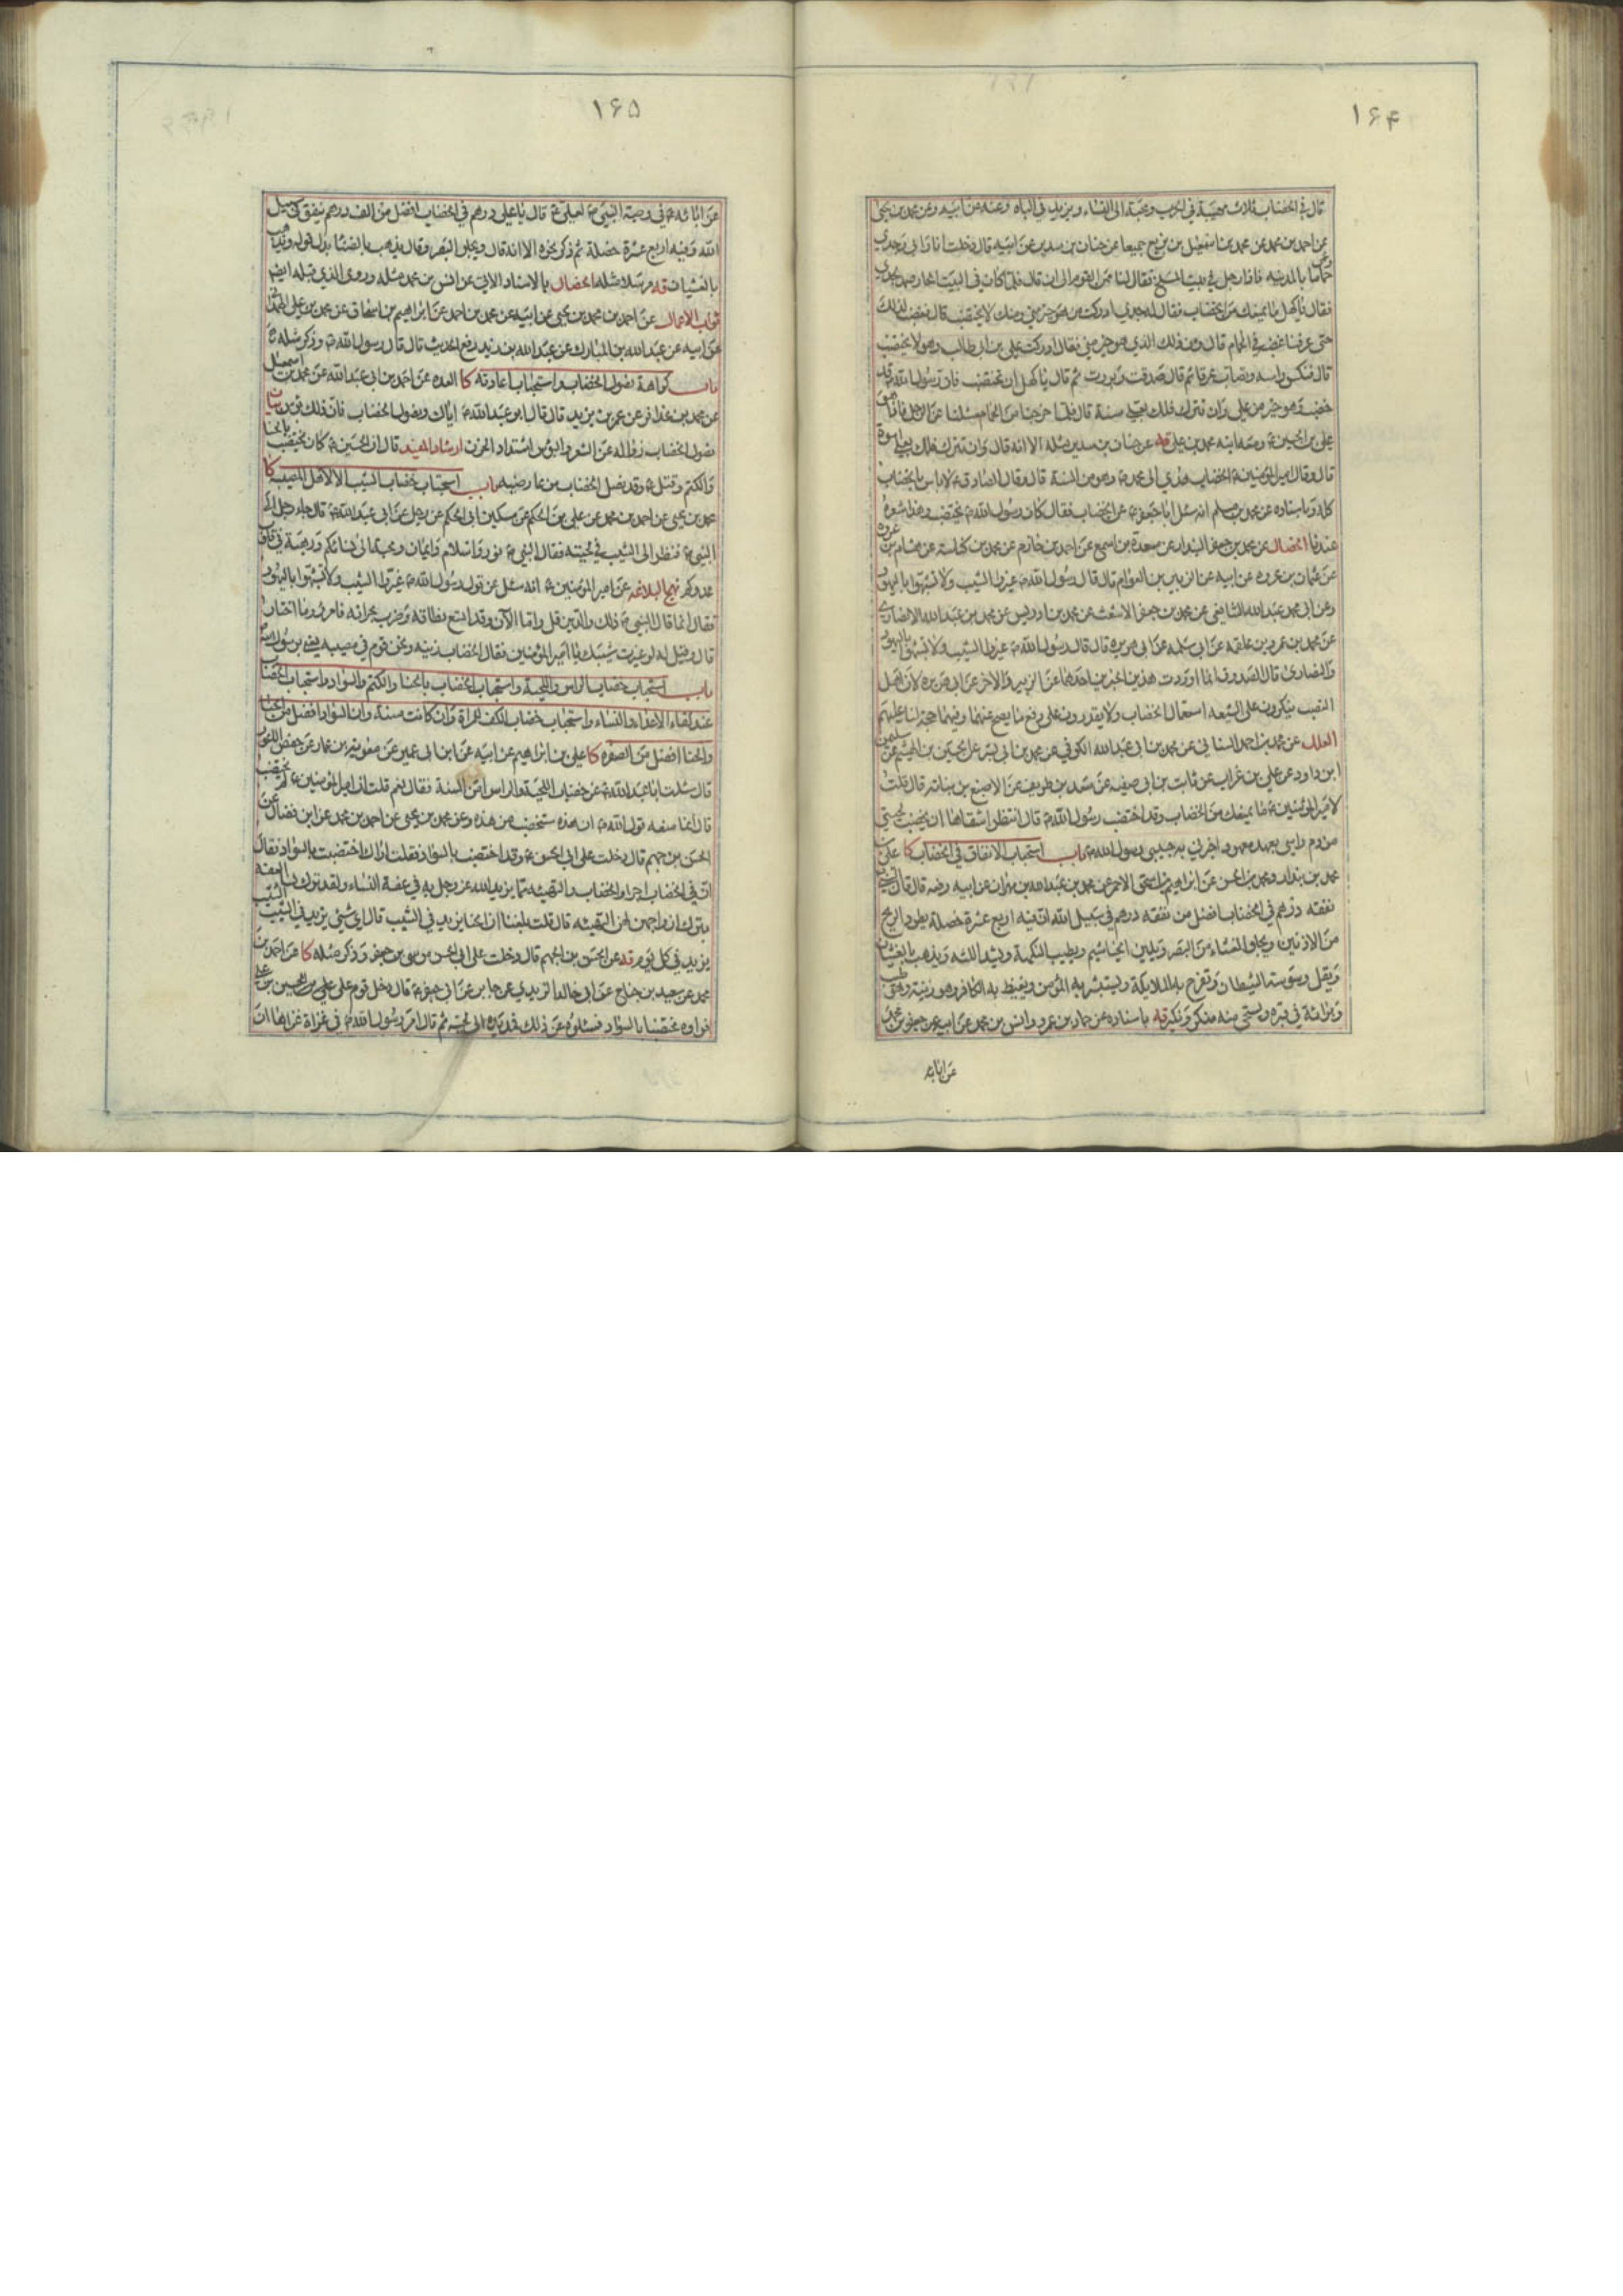 ۱۶۴
قال في الخضاب ثلاث مهيبة في الحرب ومحبة الى النساء ويزيد في الباه وعنه عن ابيه وعن محمد بن يحيى
عن احمد بن محمد عن محمد عن اسمعيل بن بزيع جميعا عن حنان بن سدير عن ابيه قال دخلت انا وابي وجدي وعمي
حماما بالمدينه فاذا رجل في بيت المسلخ فقال لنا ممن القوم الى ان قال فلما كان في البيت الحار صمد لجدي
فقال يا كهل ما يمنعك من الخضاب فقال له جدي ادركت من هو خير مني ومنك لا يختضب قال فغضب لذلك
حتى عرفنا غضبه في الحمام قال ومن ذلك الذي هو خير مني فقال ادركت علي بن ابي طالب وهو لا يختضب
قال فنكس راسه وتصاب عرقا ثم قال صدقت وبررت ثم قال يا كهل ان تختضب فان رسول الله ص قد
خضب وهو خير من علي وان تترك فلك بعلي سنة قال فلما خرجنا من الحمام سئلنا عن الرجل فاذا هو
علي بن الحسين ع ومعه ابنه محمد بن علي قه عن حنان بن سدير مثله الا انه قال وان تترك فلك بعلي اسوة
قال وقال امير المؤمنين ع الخضاب هدي الى محمد ص وهو من السنة قال وقال الصادق ع لا باس بالخضاب
كله وباسناده عن محمد بن مسلم انه سئل ابا جعفر ع عن الخضاب فقال كان رسول الله ص يختضب وهذا شعره
عندنا الخصال عن محمد بن جعفر البندار عن مسعدة بن اسمع عن احمد بن خازم عن محمد بن كناسة عن هشام بن عروه
عن عثمان بن عروه عن ابيه عن الزبير بن العوام قال قال رسول الله ص غيروا الشيب ولا تشبهوا باليهود
وعن ابي محمد عبد الله الشافعي عن محمد بن جعفر الاشعث عن محمد بن ادريس عن محمد بن عبد الله الانصاري
عن محمد بن عمرو بن علقمه عن ابي سلمه عن ابي هريره قال قال رسول الله ص غيروا الشيب ولا تشبهوا باليهود
والنصارى قال الصدوق انما اوردت هذين الخبرين احدهما عن الزبير والاخر عن ابي هريره لان اهل
النصب ينكرون على الشيعه استعمال الخضاب ولا يقدرون على دفع ما يصح عنهما وفيهما حجة لنا عليهم
العلل عن محمد بن احمد السناني عن محمد بن ابي عبد الله الكوفي عن محمد بن ابي بشر عن الحسين بن الهيثم عن سليمن
ابن داود عن علي بن غراب عن ثابت بن ابي صفيه عن سعد بن طريف عن الاصبغ بن نباته قال قلت
لامير المؤمنين ع ما يمنعك من الخضاب وقد اختضب رسول الله ص قال انتظر اشقاها ان يخضب لحيتي
من دم راسي بعهد معهود اخبرني به حبيبي رسول الله ص باب استحباب الانفاق في الخضاب كا علي بن
محمد بن بندار ومحمد بن الحسن عن ابراهيم بن اسحق الاحمر عن محمد بن عبد الله بن مهران عن ابيه رفعه قال قال النبي ص
نفقه درهم في الخضاب افضل من نفقه درهم في سبيل الله ان فيه اربع عشرة خصلة يطرد الريح
من الاذنين ويجلو الغشاء من البصر ويلين الخياشيم ويطيب النكهة ويشد اللثه ويذهب بالغشيان
ويقل وسوسة الشيطان وتفرح به الملائكة ويستبشر به المؤمن ويغيظ به الكافر وهو زينة وهو طيب
وبراءة في قبره ويستحي منه منكر ونكير قه باسناده عن حماد بن عمرو وانس بن محمد عن ابيه عن جعفر بن محمد
عن ابائه
۱۶۵
عن ابائه ع في وصية النبي ص لعلي ع قال يا علي درهم في الخضاب افضل من الف درهم ينفق في سبيل
الله وفيه اربع عشرة خصلة ثم ذكر نحوه الا انه قال ويجلو البصر وقال يذهب بالضنا بدل قوله ويذهب
بالغشيان قه مرسلا مثله الخصال بالاسناد الاتي عن انس بن محمد مثله وروى الذي قبله ايضا
ثواب الاعمال عن احمد بن محمد بن يحيى عن ابيه عن محمد بن احمد عن ابراهيم بن اسحاق عن محمد بن علي الهمداني
عن ابيه عن عبد الله بن المبارك عن عبد الله بن زيد رفع الحديث قال قال رسول الله ص وذكر مثله
باب كراهة نصول الخضاب واستحباب اعادته كا العده عن احمد بن ابي عبد الله عن محمد بن اسمعيل
عن محمد بن عذافر عن عمر بن يزيد قال قال ابو عبد الله ع اياك ونصول الخضاب فان ذلك بؤس بيان
نصول الخضاب زواله عن الشعر والبؤس اشتداد الحزن ارشاد المفيد قال ان الحسين ع كان يختضب بالحنا
والكتم وقتل ع وقد نصل الخضاب من عارضيه باب استحباب خضاب الشيب الا لاهل المصيبه كا
محمد بن يحيى عن احمد بن محمد عن علي بن الحكم عن مسكين ابي الحكم عن رجل عن ابي عبد الله ع قال جاء رجل الى
النبي ص فنظر الى الشيب في لحيته فقال النبي ص نور واسلام وايمان ومحبة الى نسائكم ورهبة في قلوب
عدوكم نهج البلاغه عن امير المؤمنين ع انه سئل عن قول رسول الله ص غيروا الشيب ولا تشبهوا باليهود
فقال انما قال النبي ص ذلك والدين قل واما الآن وقد اتسع نطاقه وضرب بجرانه فامرؤ وما اختار
قال وقيل له لو غيرت شيبك يا امير المؤمنين فقال الخضاب زينه ونحن قوم في مصيبه يعني برسول الله ص
باب استحباب خضاب الراس واللحية واستحباب الخضاب بالحنا والكتم والسواد واستحباب الخضاب
عند لقاء الاعداء والنساء واستحباب خضاب الكف للمراة وان كانت مسنة وان السواد افضل من الحنا
والحنا افضل من الصفره كا علي بن ابراهيم عن ابيه عن ابن ابي عمير عن معويه بن عمار عن حفص الاعور
قال سئلت ابا عبد الله ع عن خضاب اللحية والراس امن السنة فقال نعم قلت ان امير المؤمنين ع لم يختضب
قال انما منعه قول رسول الله ص ان هذه ستخضب من هذه وعن محمد بن يحيى عن احمد بن محمد عن ابن فضال عن
الحسن بن جهم قال دخلت على ابي الحسن ع وقد اختضب بالسواد فقلت اراك اختضبت بالسواد فقال
ان في الخضاب اجرا والخضاب والتهيئه مما يزيد الله عز وجل به في عفة النساء ولقد ترك النساء العفه
بترك ازواجهن لهن التهيئه قال قلت بلغنا ان الحنا يزيد في الشيب قال اي شئ يزيد في الشيب الشيب
يزيد في كل يوم قه عن الحسن بن الجهم قال دخلت على ابي الحسن موسى بن جعفر وذكر مثله كا عن احمد بن
محمد عن سعيد بن جناح عن ابي خالد الزيدي عن جابر عن ابي جعفر ع قال دخل قوم على الحسين بن علي
فراوه مختضبا بالسواد فسئلوه عن ذلك فمد يده الى لحيته ثم قال امر رسول الله ص في غزاة غزاها ان